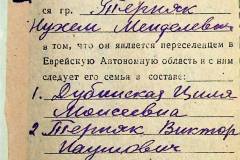 ся гр. Терняк
Нухем Менделевич
в том, что он является переселенцем в
Еврейскую Автономную область и с ним
следует его семья в составе:
1. Дубинская Циля
Моисеевна
2. Терняк Виктор
Наумович